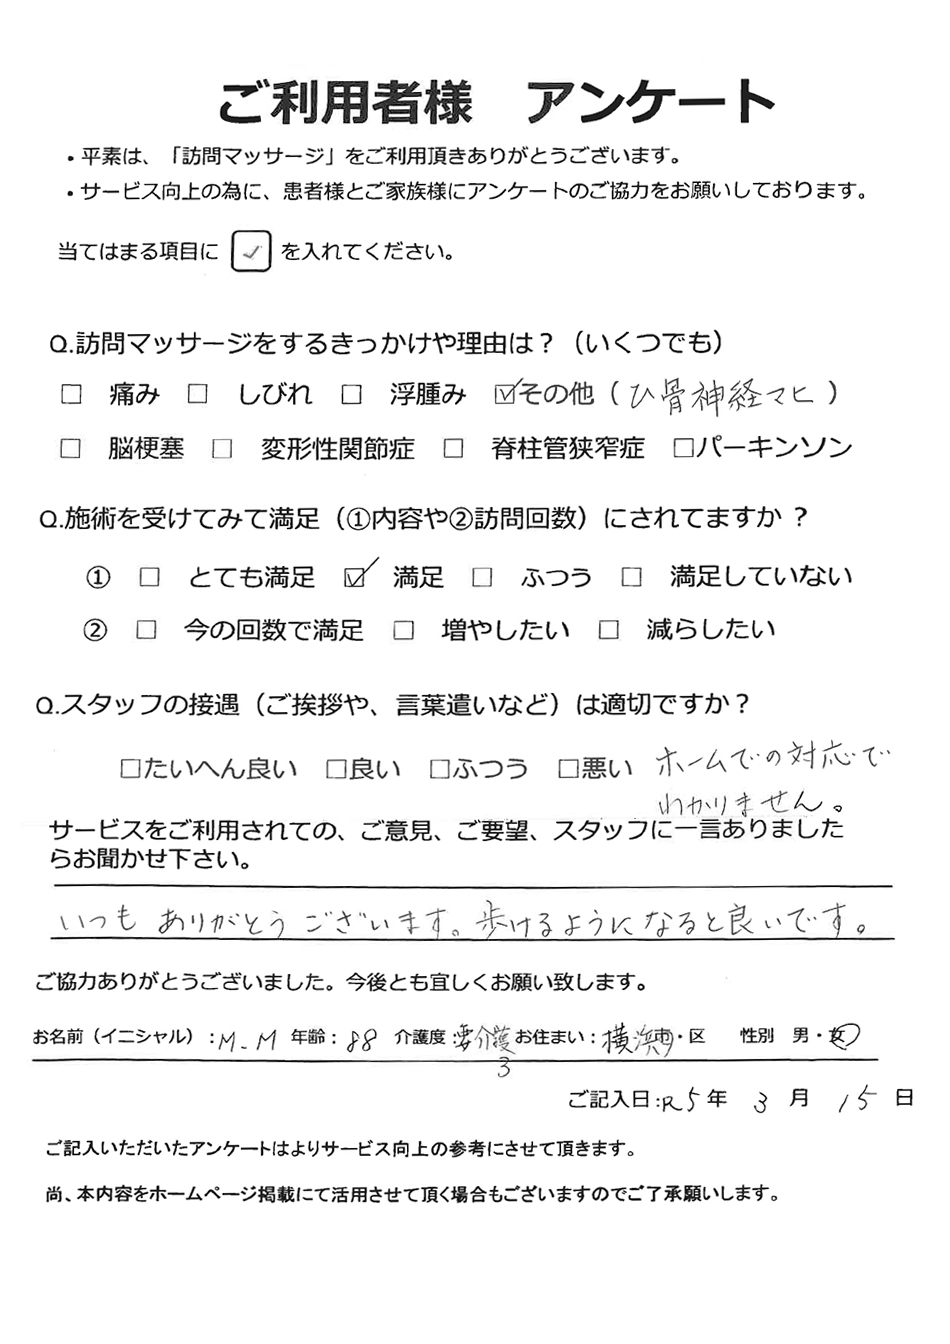 ご利用者様 アンケート
・平素は、「訪問マッサージ」をご利用頂きありがとうございます。
・サービス向上の為に、患者様とご家族様にアンケートのご協力をお願いしております。
当てはまる項目に ☑ を入れてください。
Q.訪問マッサージをするきっかけや理由は？（いくつでも）
□ 痛み □ しびれ □ 浮腫み ☑その他（ひ骨神経マヒ）
□ 脳梗塞 □ 変形性関節症 □ 脊柱管狭窄症 □パーキンソン
Q.施術を受けてみて満足（①内容や②訪問回数）にされてますか？
① □ とても満足 ☑ 満足 □ ふつう □ 満足していない
② □ 今の回数で満足 □ 増やしたい □ 減らしたい
Q.スタッフの接遇（ご挨拶や、言葉遣いなど）は適切ですか？
□たいへん良い □良い □ふつう □悪い ホームでの対応で
わかりません。
サービスをご利用されての、ご意見、ご要望、スタッフに一言ありました
らお聞かせ下さい。
いつも ありがとう ございます。歩けるようになると良いです。
ご協力ありがとうございました。今後とも宜しくお願い致します。
お名前（イニシャル）：M.M 年齢：88 介護度：要介護3 お住まい：横浜市・区 性別 男・女
ご記入日：R5年 3月 15日
ご記入いただいたアンケートはよりサービス向上の参考にさせて頂きます。
尚、本内容をホームページ掲載にて活用させて頂く場合もございますのでご了承願いします。